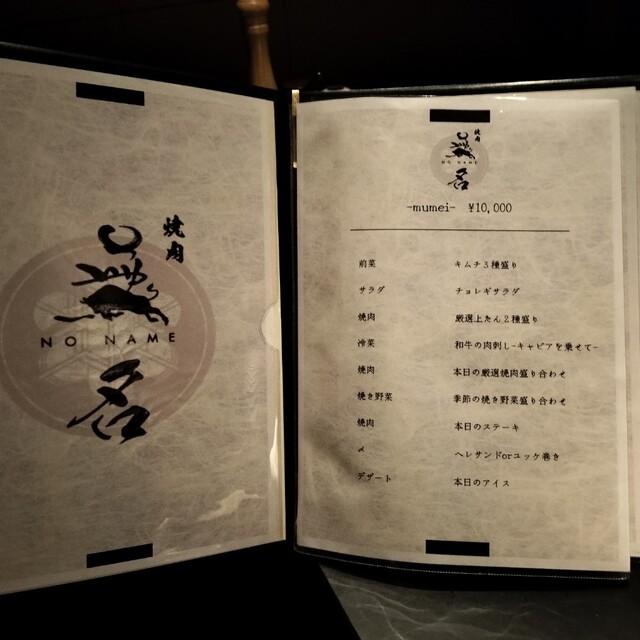 焼肉
無
NO NAME
名
焼肉
無
NO NAME
名
-mumei- ¥10,000
前菜 キムチ3種盛り
サラダ チョレギサラダ
焼肉 厳選上たん2種盛り
冷菜 和牛の肉刺し-キャビアを乗せて-
焼肉 本日の厳選焼肉盛り合わせ
焼き野菜 季節の焼き野菜盛り合わせ
焼肉 本日のステーキ
〆 ヘレサンドorユッケ巻き
デザート 本日のアイス